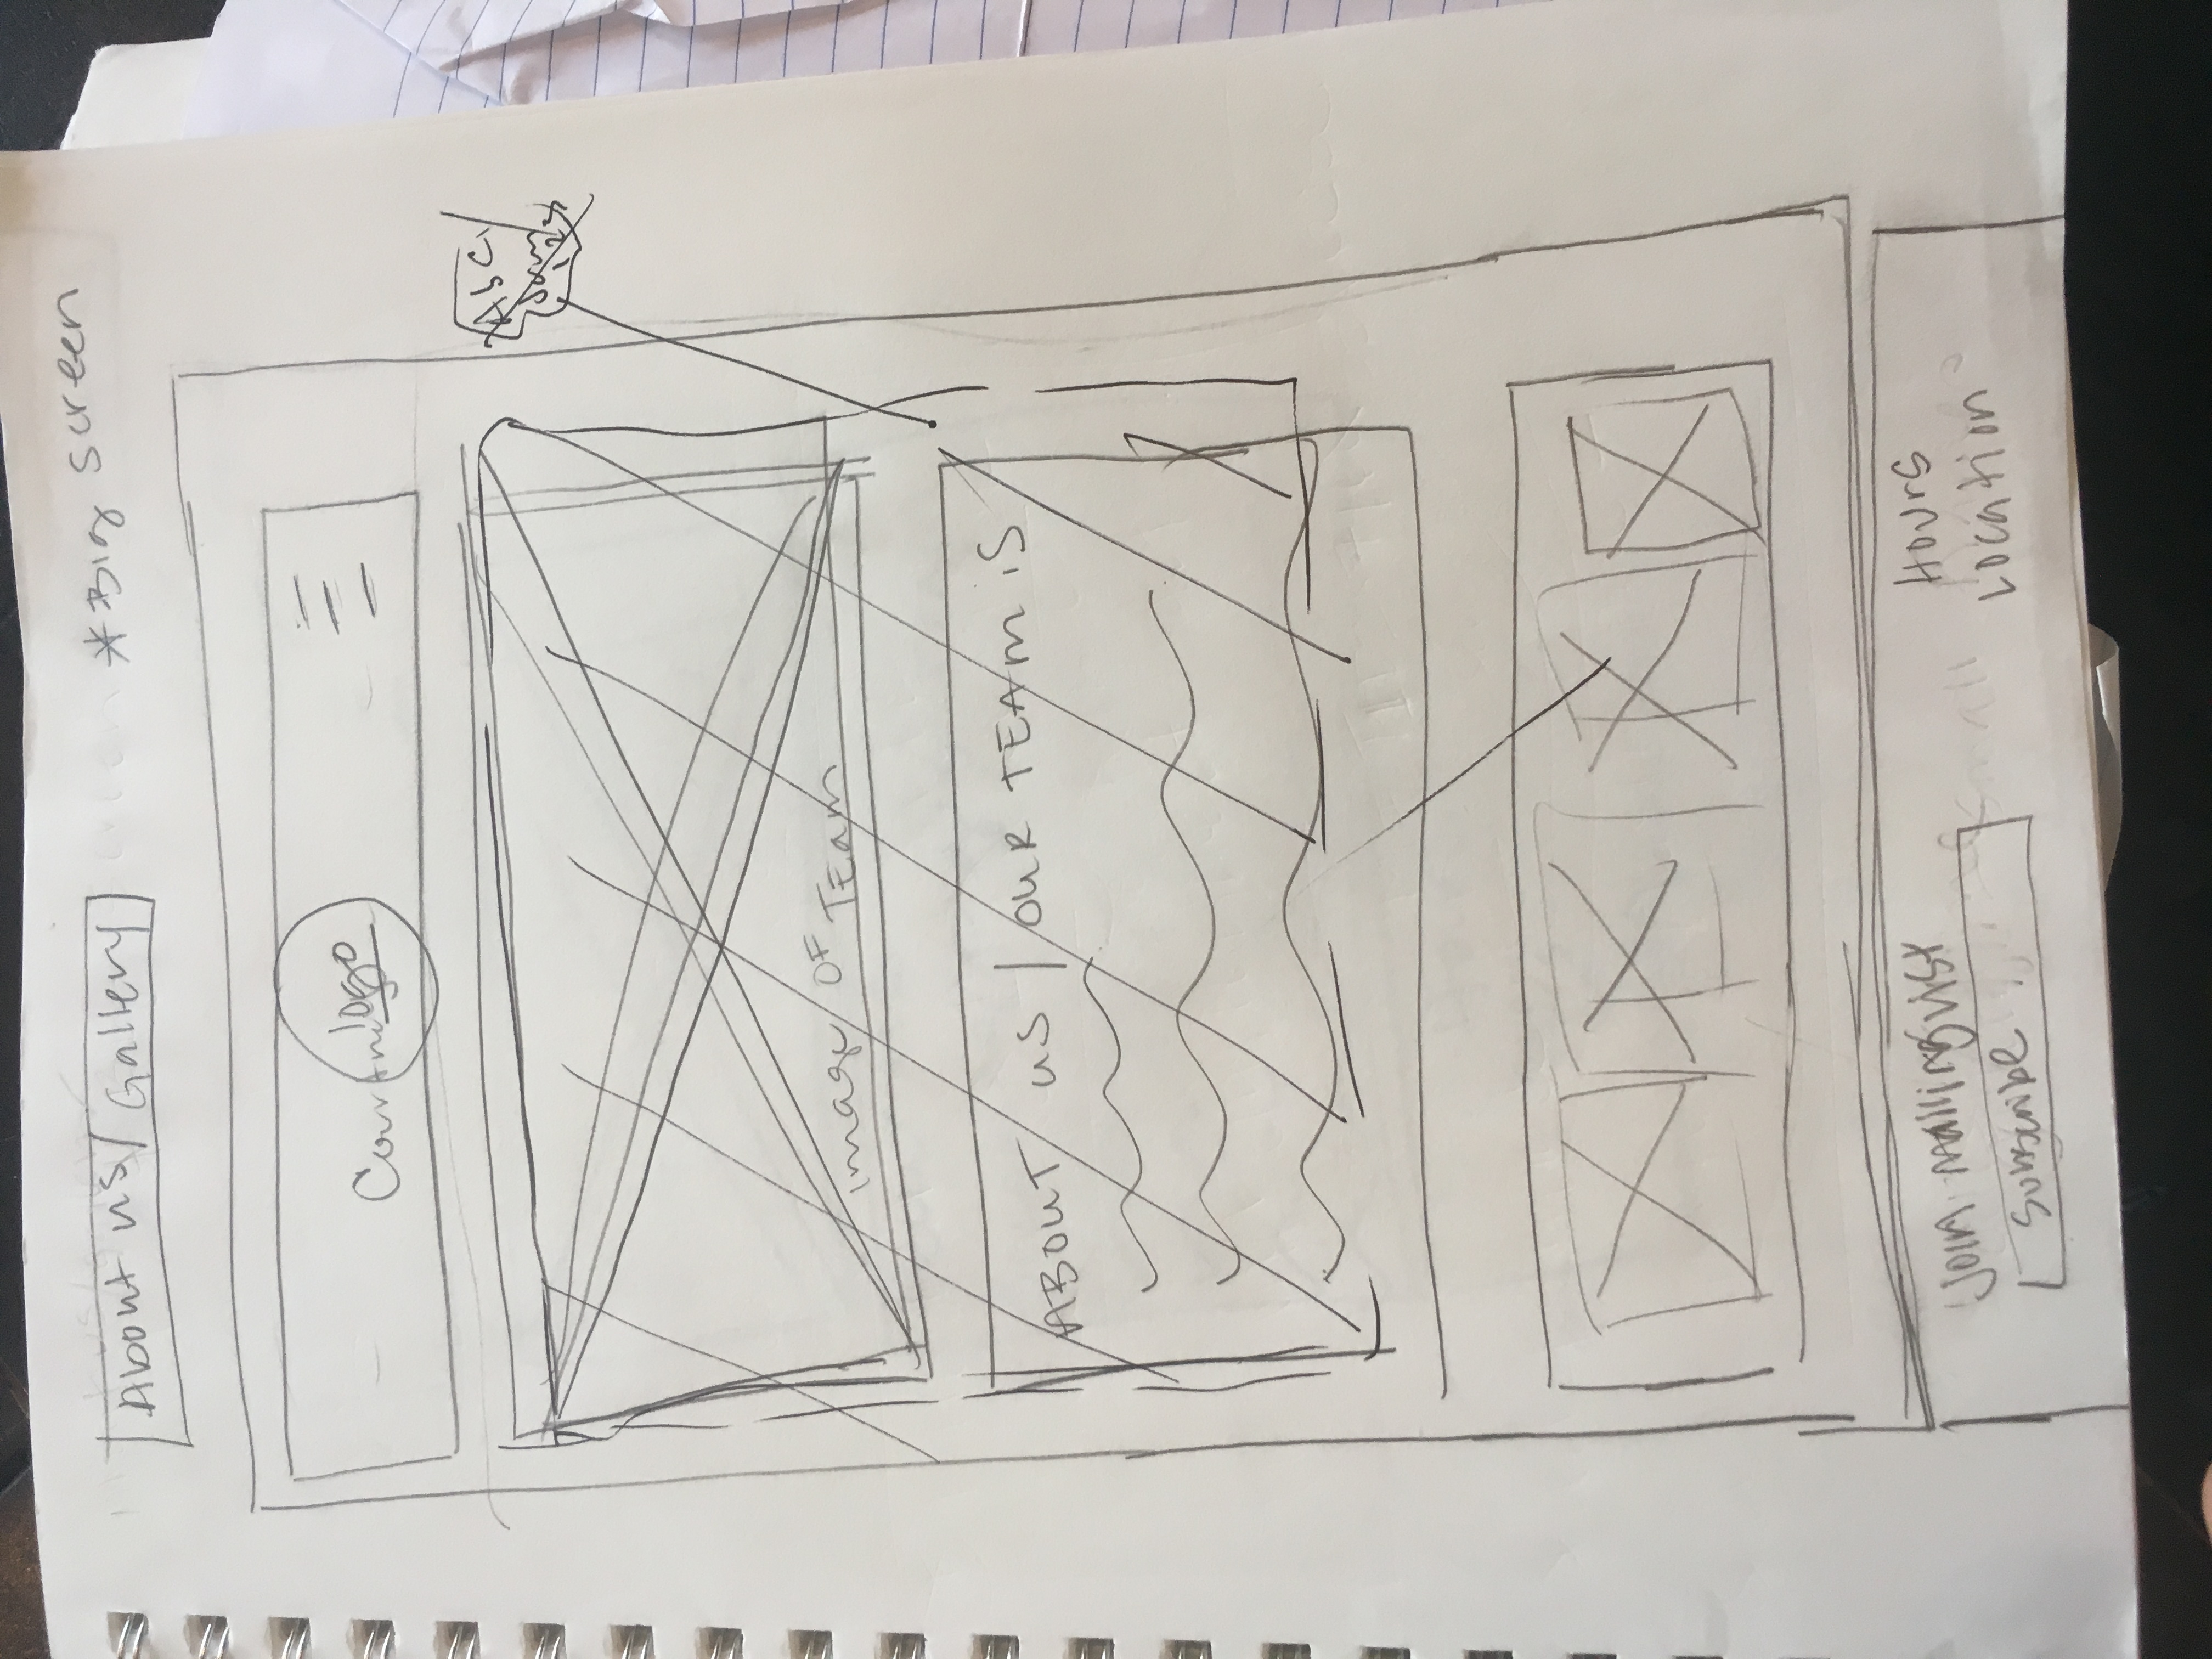 About us / Gallery
*Big screen
logo
AbC,
123
image OF TEam
ABOUT US / OUR TEAM iS
Join mailing list
Subscribe
Hours
Location